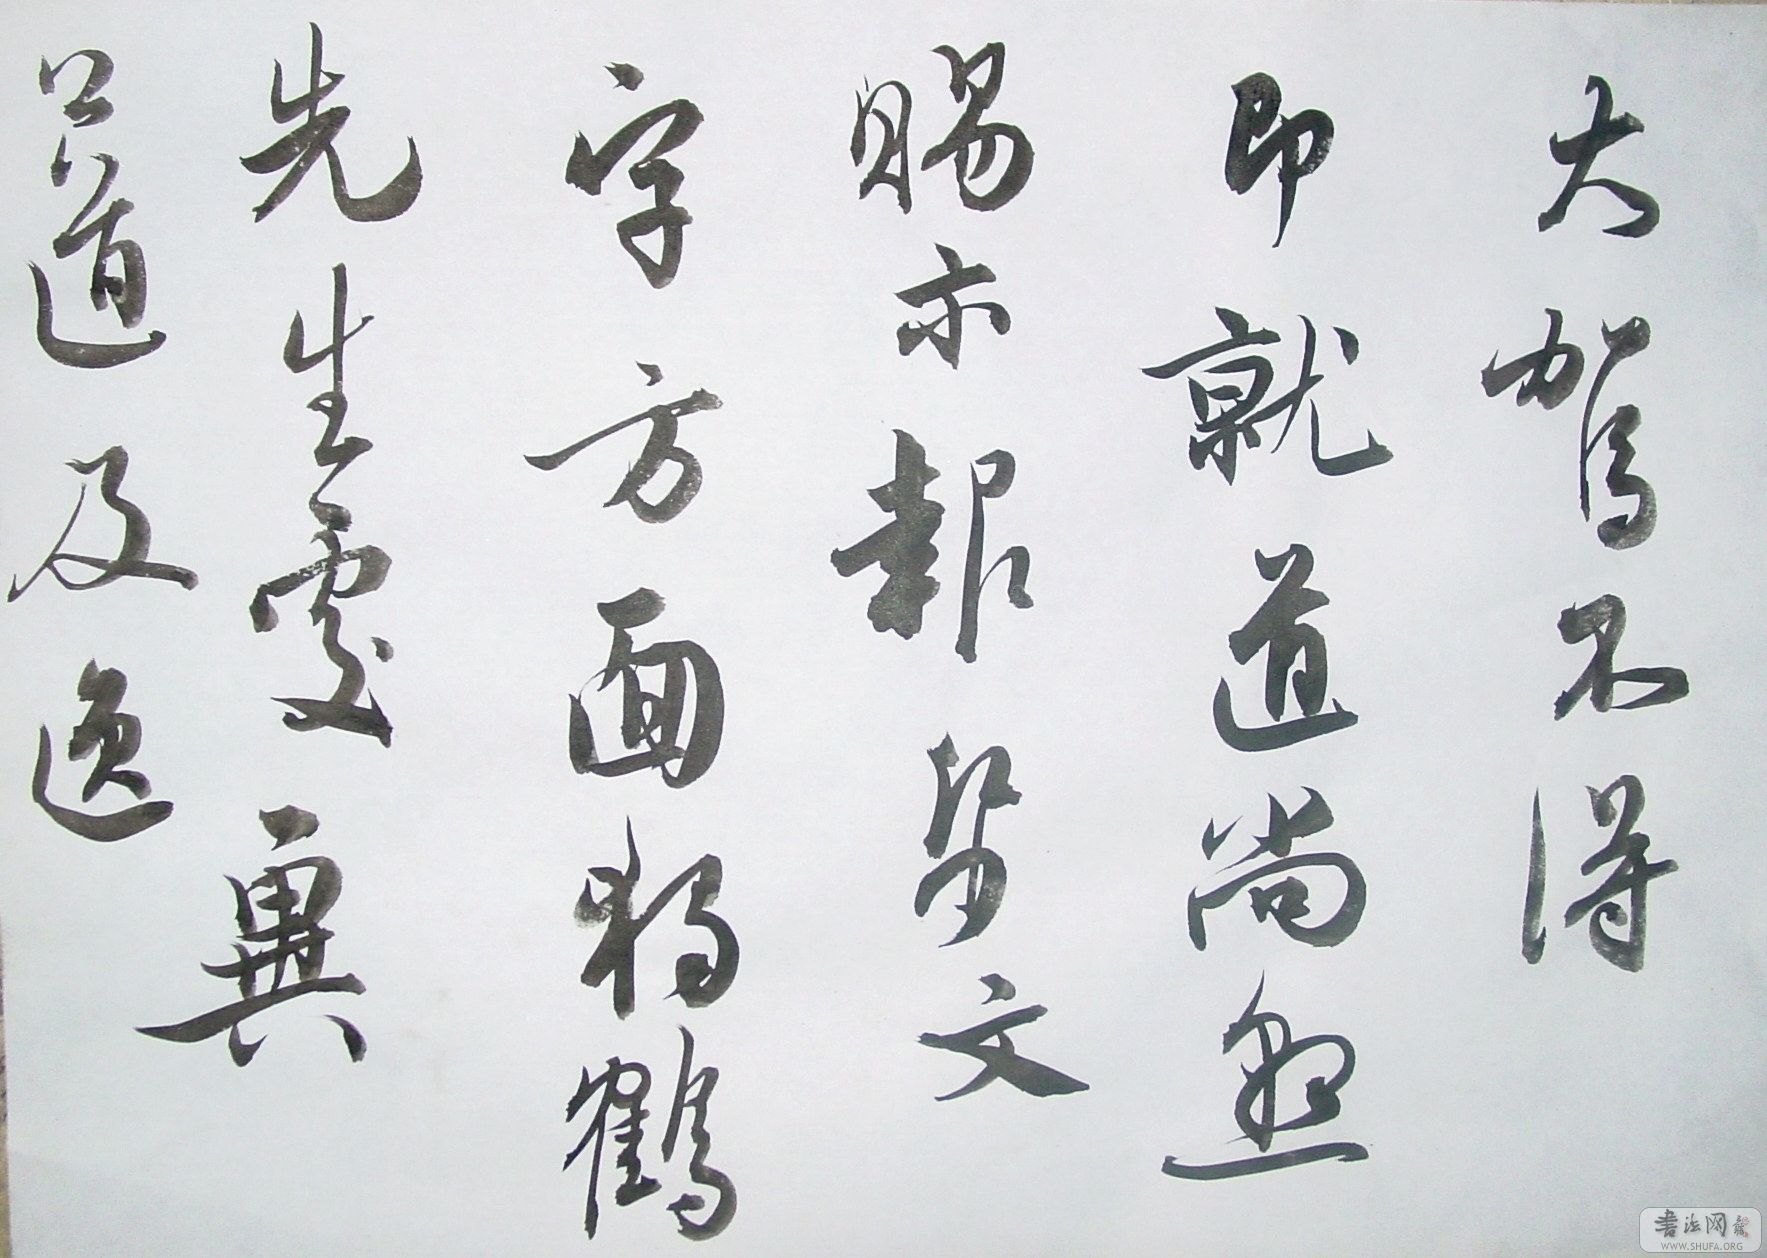 大駕不得
即就道尚
賜示報文
字方面鶴
先生處冀
道及逸
書法网
WWW.SHUFA.ORG